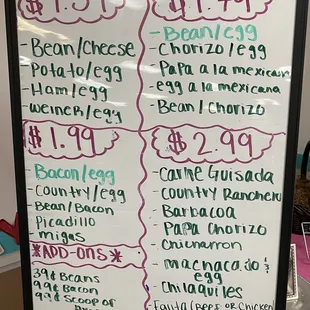 -Bean/cheese
-Potato/egg
-Ham/egg
-weiner/egg
-Bean/egg
-Chorizo/egg
-Papa a la mexicana
-egg a la mexicana
-Bean/Chorizo
$1.99
-Bacon/egg
-country/egg
-Bean/Bacon
-Picadillo
-migas
*ADD-ONS*
39¢ Beans
99¢ Bacon
99¢ Scoop of
$2.99
-Carne Guisada
-country Ranchero
-Barbacoa
-Papa Chorizo
-Chicharron
-machacado & egg
-Chilaquiles
-Fajita (BEEF OR Chicken)